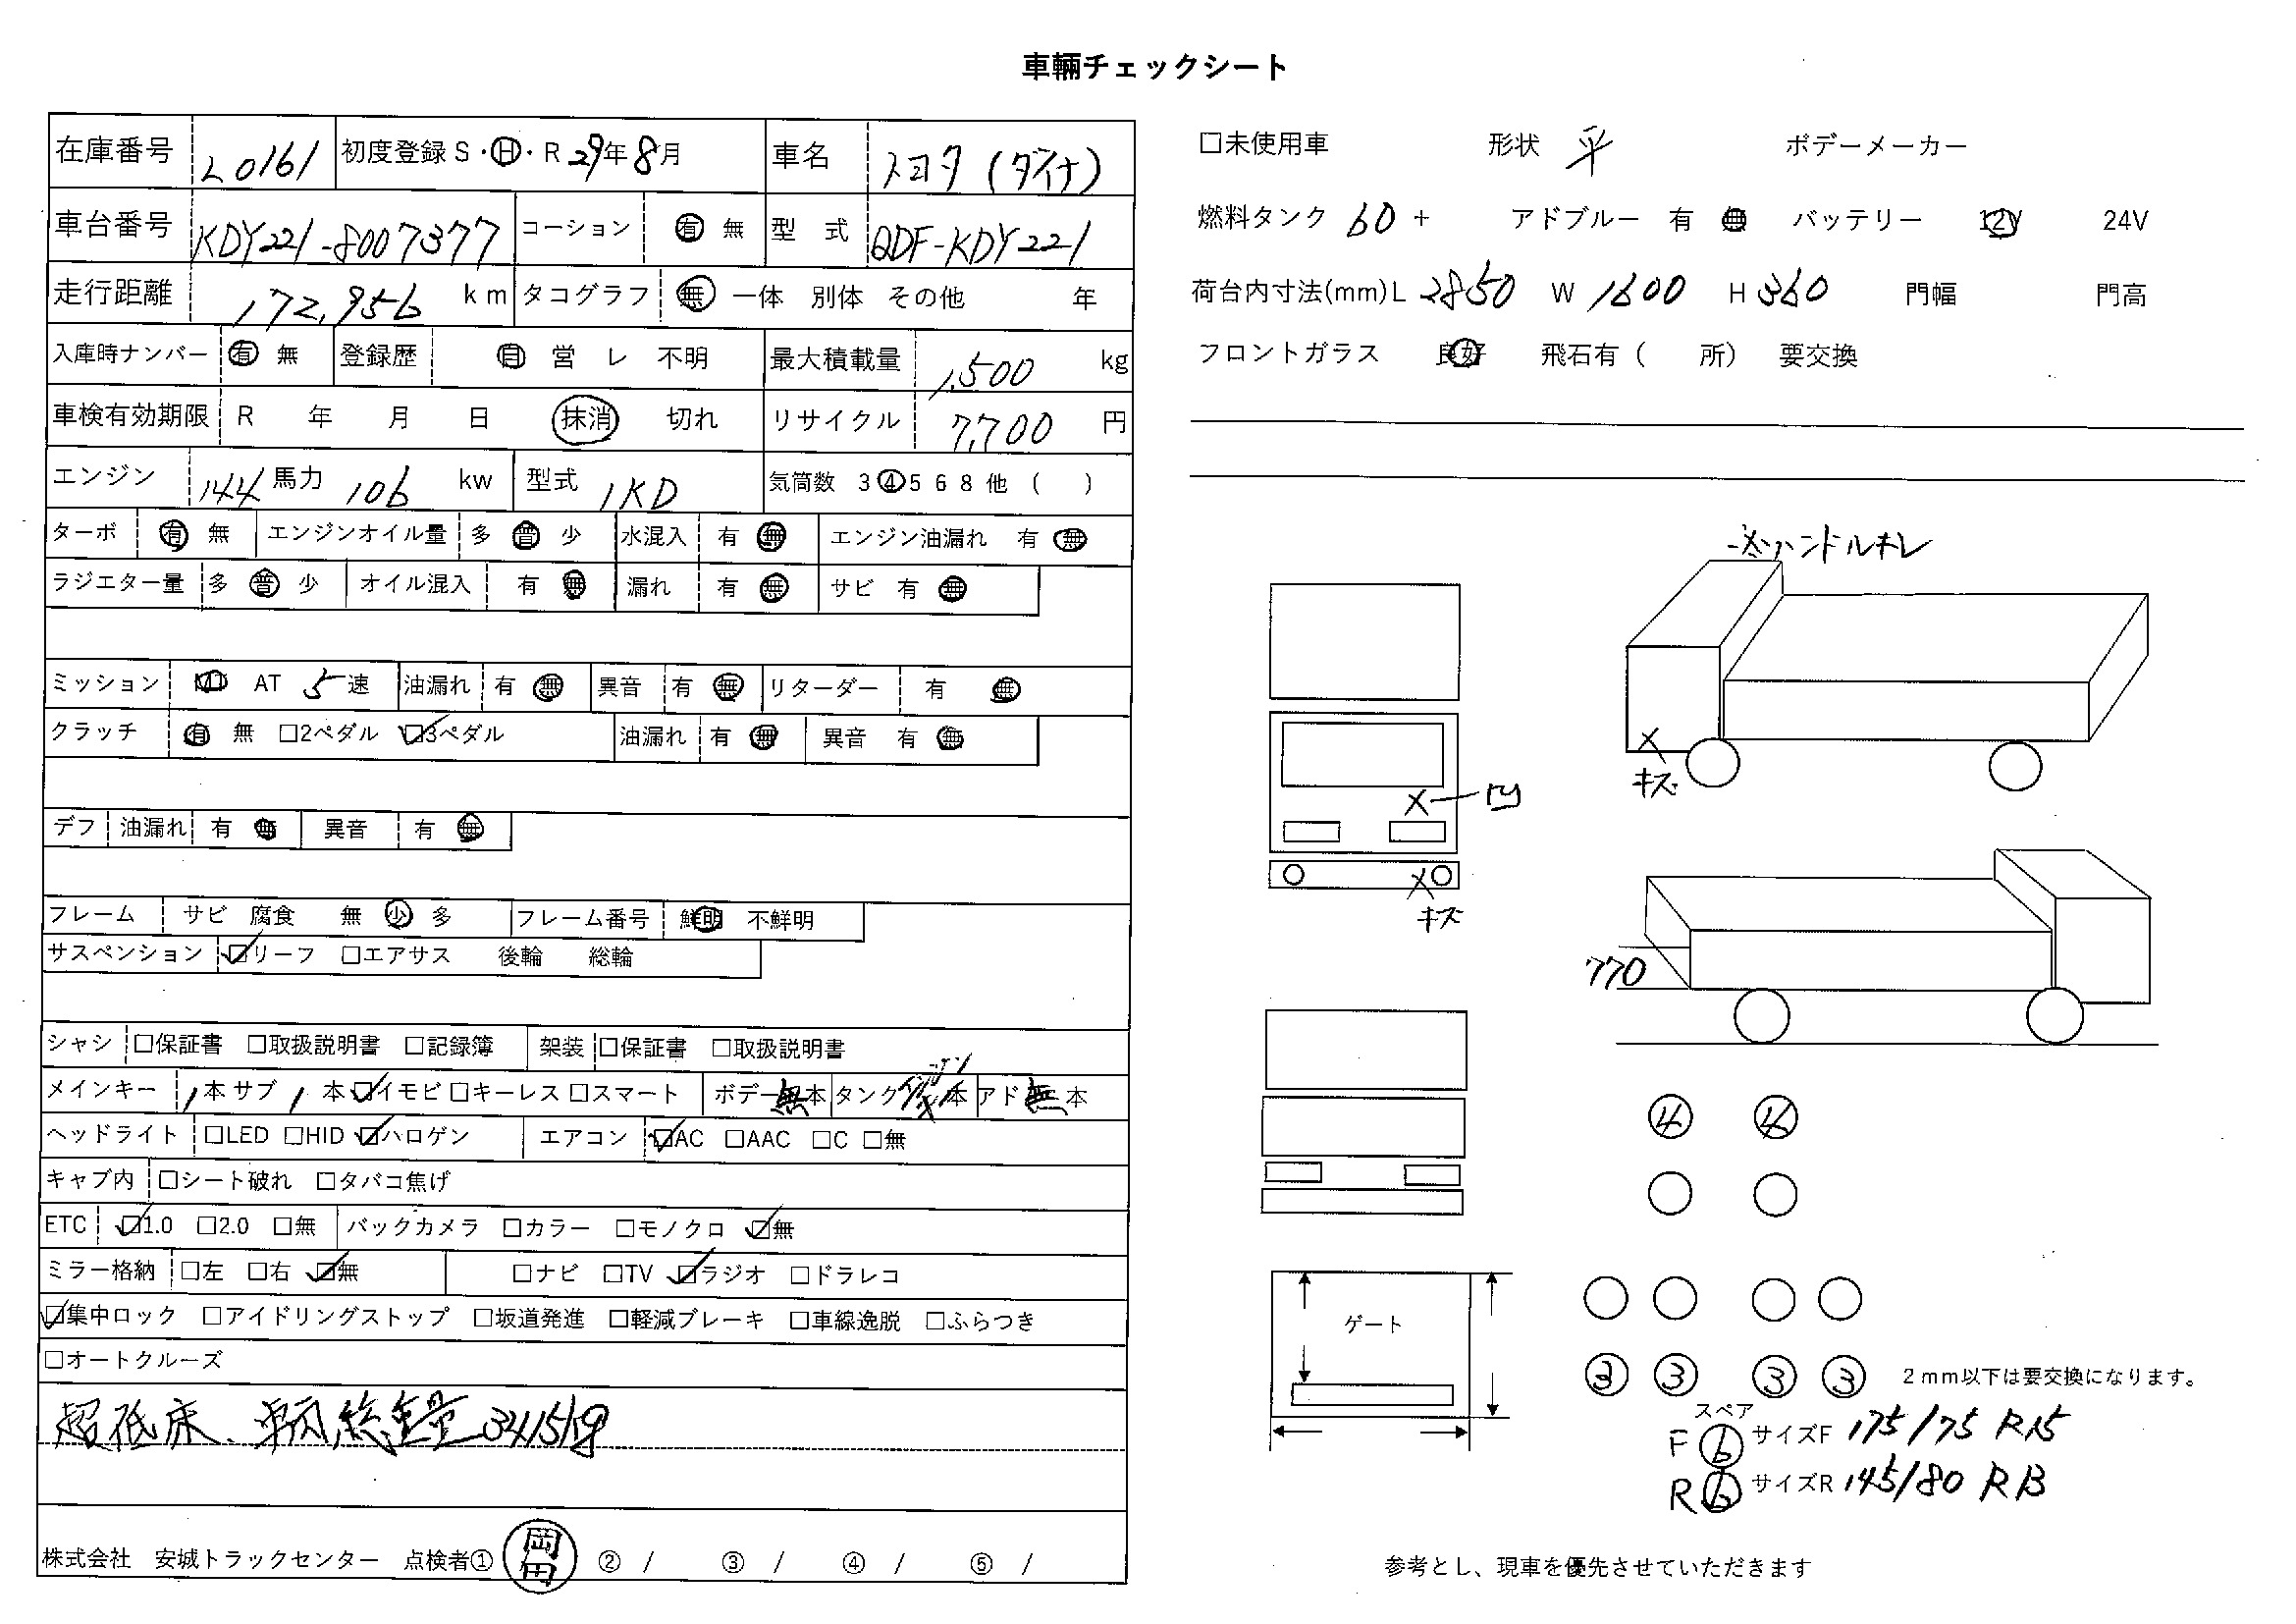 車輛チェックシート
在庫番号 L0161 初度登録 S・H・R 29年 8月 車名 トヨタ(ダイナ)
車台番号 KDY221-8007377 コーション 有 無 型 式 QDF-KDY221
走行距離 172,956 km タコグラフ 無 一体 別体 その他 年
入庫時ナンバー 有 無 登録歴 自 営 レ 不明 最大積載量 1,500 kg
車検有効期限 R 年 月 日 抹消 切れ リサイクル 7,700 円
エンジン 144 馬力 106 kw 型式 1KD 気筒数 3 4 5 6 8 他 ( )
ターボ 有 無 エンジンオイル量 多 普 少 水混入 有 無 エンジン油漏れ 有 無
ラジエター量 多 普 少 オイル混入 有 無 漏れ 有 無 サビ 有 無
ミッション MT AT 5速 油漏れ 有 無 異音 有 無 リターダー 有 無
クラッチ 有 無 □2ペダル ☑3ペダル 油漏れ 有 無 異音 有 無
デフ 油漏れ 有 無 異音 有 無
フレーム サビ 腐食 無 少 多 フレーム番号 鮮明 不鮮明
サスペンション ☑リーフ □エアサス 後輪 総輪
シャシ □保証書 □取扱説明書 □記録簿 架装 □保証書 □取扱説明書
メインキー 1本 サブ 1本 ☑イモビ □キーレス □スマート ボデー 無 本 タンク 本 アド 無 本
ヘッドライト □LED □HID ☑ハロゲン エアコン ☑AC □AAC □C □無
キャブ内 □シート破れ □タバコ焦げ
ETC ☑1.0 □2.0 □無 バックカメラ □カラー □モノクロ ☑無
ミラー格納 □左 □右 ☑無 □ナビ □TV ☑ラジオ □ドラレコ
☑集中ロック □アイドリングストップ □坂道発進 □軽減ブレーキ □車線逸脱 □ふらつき
□オートクルーズ
超低床、車輌総重量3415kg
株式会社 安城トラックセンター 点検者① 岡田 ② / ③ / ④ / ⑤ /
□未使用車 形状 平 ボデーメーカー
燃料タンク 60 + アドブルー 有 無 バッテリー 12V 24V
荷台内寸法(mm)L 2850 W 1600 H 360 門幅 門高
フロントガラス 良好 飛石有( 所) 要交換
ハンドルキレ
キズ
凹
キズ
770
4 4
ゲート
3 3 3 3 2mm以下は要交換になります。
スペア
F 6 サイズF 175/75 R15
R 6 サイズR 145/80 R13
参考とし、現車を優先させていただきます